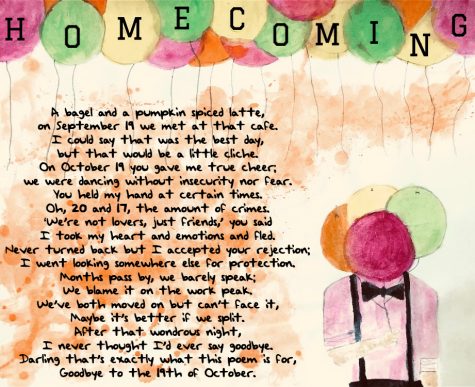 HOMECOMING
A bagel and a pumpkin spiced latte,
on September 19 we met at that cafe.
I could say that was the best day,
but that would be a little cliche.
On October 19 you gave me true cheer;
we were dancing without insecurity nor fear.
You held my hand at certain times.
Oh, 20 and 17, the amount of crimes.
'We're not lovers, just friends,' you said
I took my heart and emotions and fled.
Never turned back but I accepted your rejection;
I went looking somewhere else for protection.
Months pass by, we barely speak;
We blame it on the work peak.
We've both moved on but can't face it,
Maybe it's better if we split.
After that wondrous night,
I never thought I'd ever say goodbye.
Darling that's exactly what this poem is for,
Goodbye to the 19th of October.